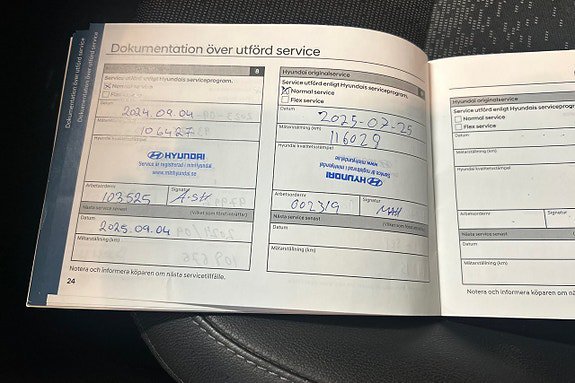 Dokumentation över utförd service
Dokumentation över utförd service
Dokumentation över utförd service
8
Service utförd enligt Hyundais serviceprogram.
Normal service
Flex service
Datum
2024.09.04
Mätarställning (km)
106427
Hyundai kvalitetsstämpel
HYUNDAI
Service är registrerad i minHyundai
www.minhyundai.se
Arbetsordernr
Signatur
103525
A.SH
Nästa service senast
(Vilket som först inträffar)
Datum
2025.09.04
Mätarställning (km)
Notera och informera köparen om nästa servicetillfälle.
24
Hyundai originalservice
Service utförd enligt Hyundais serviceprogram.
Normal service
Flex service
Datum
2025-07-25
Mätarställning (km)
116029
Hyundai kvalitetsstämpel
HYUNDAI
Service är registrerad i minHyundai
www.minhyundai.se
Arbetsordernr
Signatur
002319
MAH
Nästa service senast
(Vilket som först inträffar)
Datum
Mätarställning (km)
Hyundai originalservice
Service utförd enligt Hyundais serviceprogram
Normal service
Flex service
Datum
Mätarställning (km)
Hyundai kvalitetsstämpel
Arbetsordernr
Nästa service senast
Datum
Mätarställning (km)
Notera och informera köparen om nästa